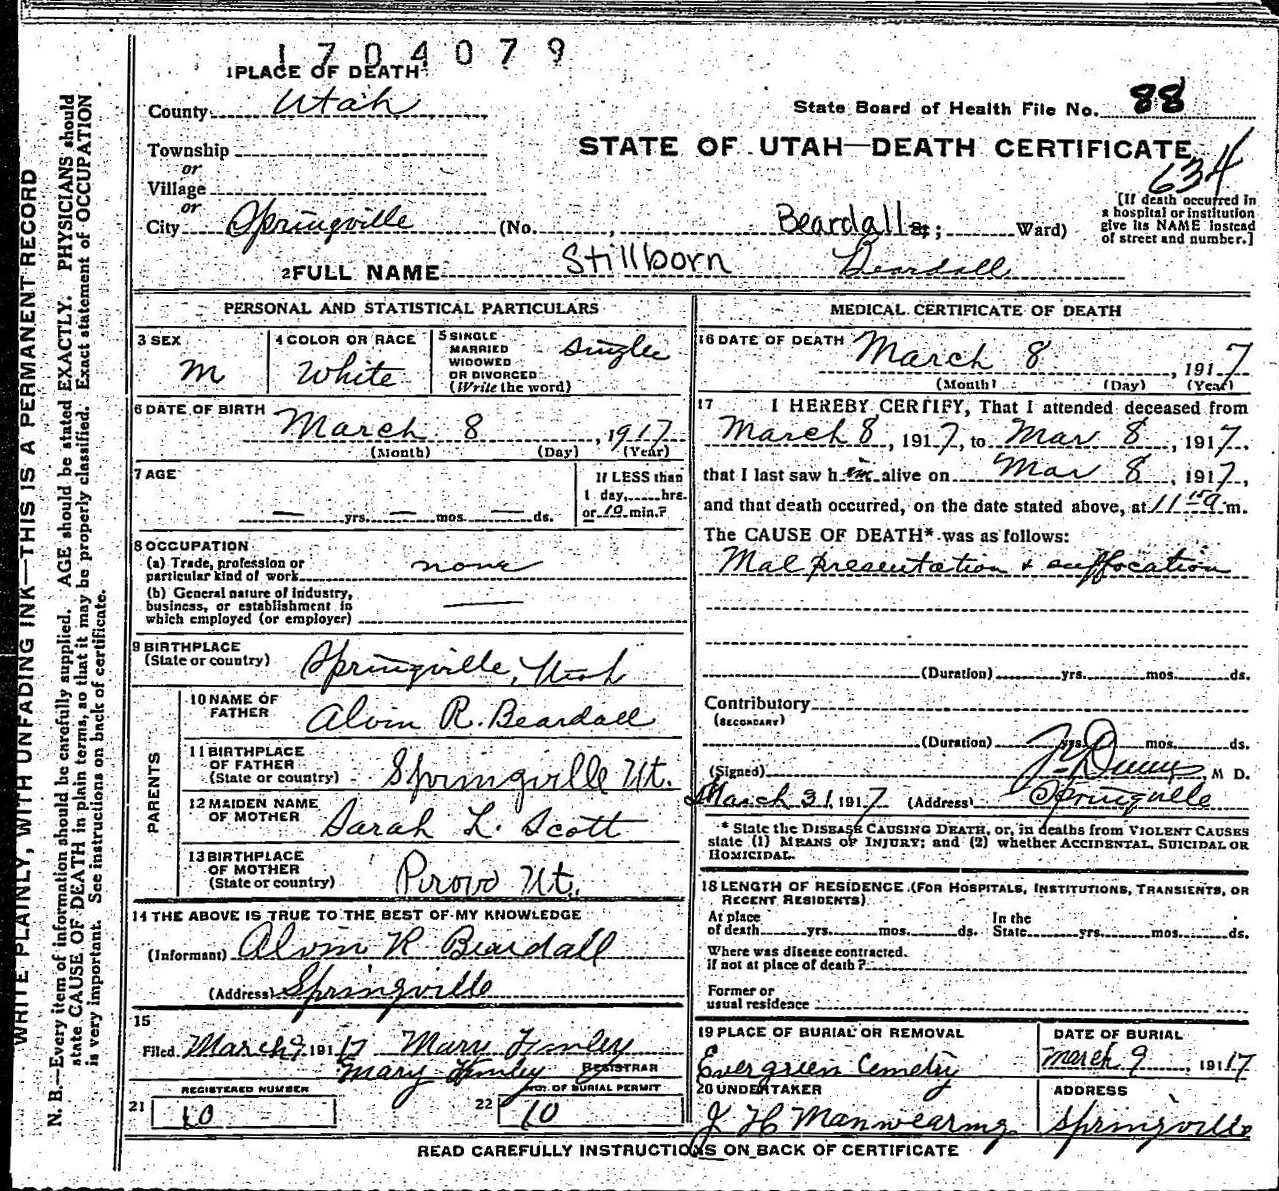 1704079
1 PLACE OF DEATH
County Utah
State Board of Health File No. 88
Township
STATE OF UTAH—DEATH CERTIFICATE
634
or
Village
or
City Springville (No. , Beardall St; Ward)
[If death occurred in
a hospital or institution
give its NAME instead
of street and number.]
2 FULL NAME Stillborn Beardall
PERSONAL AND STATISTICAL PARTICULARS
3 SEX
M
4 COLOR OR RACE
White
5 SINGLE
MARRIED
WIDOWED
OR DIVORCED
(Write the word)
single
6 DATE OF BIRTH
March 8, 1917
(Month) (Day) (Year)
7 AGE
— yrs. — mos. — ds.
If LESS than
1 day, hrs.
or 10 min.?
8 OCCUPATION
(a) Trade, profession or
particular kind of work none
(b) General nature of industry,
business, or establishment in
which employed (or employer) —
9 BIRTHPLACE
(State or country) Springville, Utah
PARENTS
10 NAME OF
FATHER Alvin R. Beardall
11 BIRTHPLACE
OF FATHER
(State or country) Springville Ut.
12 MAIDEN NAME
OF MOTHER Sarah L. Scott
13 BIRTHPLACE
OF MOTHER
(State or country) Provo Ut.
14 THE ABOVE IS TRUE TO THE BEST OF MY KNOWLEDGE
(Informant) Alvin R Beardall
(Address) Springville
15
Filed March 9, 1917 Mary Finley
Mary Finley REGISTRAR
REGISTERED NUMBER
21 10
NO. OF BURIAL PERMIT
22 10
MEDICAL CERTIFICATE OF DEATH
16 DATE OF DEATH March 8, 1917
(Month) (Day) (Year)
17 I HEREBY CERTIFY, That I attended deceased from
March 8, 1917, to Mar 8, 1917.
that I last saw him alive on Mar 8, 1917,
and that death occurred, on the date stated above, at 11 a m.
The CAUSE OF DEATH* was as follows:
Mal presentation & suffocation
(Duration) yrs. mos. ds.
Contributory
(SECONDARY)
(Duration) yrs. mos. ds.
(Signed) , M D.
March 31, 1917 (Address) Springville
* State the DISEASE CAUSING DEATH, or, in deaths from VIOLENT CAUSES
state (1) MEANS OF INJURY; and (2) whether ACCIDENTAL, SUICIDAL OR
HOMICIDAL.
18 LENGTH OF RESIDENCE (FOR HOSPITALS, INSTITUTIONS, TRANSIENTS, OR
RECENT RESIDENTS)
At place
of death yrs. mos. ds.
In the
State yrs. mos. ds.
Where was disease contracted.
if not at place of death?
Former or
usual residence
19 PLACE OF BURIAL OR REMOVAL
Evergreen Cemetry
DATE OF BURIAL
March 9, 1917
20 UNDERTAKER
J H Manwearing
ADDRESS
Springville
READ CAREFULLY INSTRUCTIONS ON BACK OF CERTIFICATE
WRITE PLAINLY, WITH UNFADING INK—THIS IS A PERMANENT RECORD
N. B.—Every item of information should be carefully supplied. AGE should be stated EXACTLY. PHYSICIANS should
state CAUSE OF DEATH in plain terms, so that it may be properly classified. Exact statement of OCCUPATION
is very important. See instructions on back of certificate.